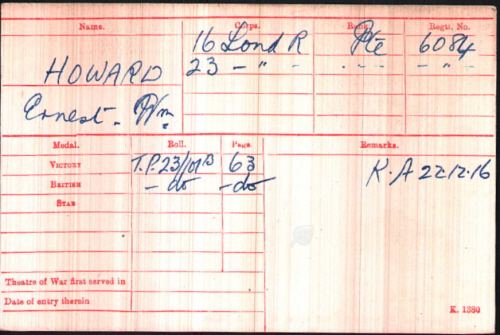 Name. Corps. Rank. Regtl. No.
16 Lond R Pte 6084
HOWARD 23 - " - - - - - " -
Ernest. Wm
Medal. Roll. Page. Remarks.
VICTORY T.P.23/101B 63 K.A 22.12.16
BRITISH - do - do
STAR
Theatre of War first served in
Date of entry therein
K. 1380